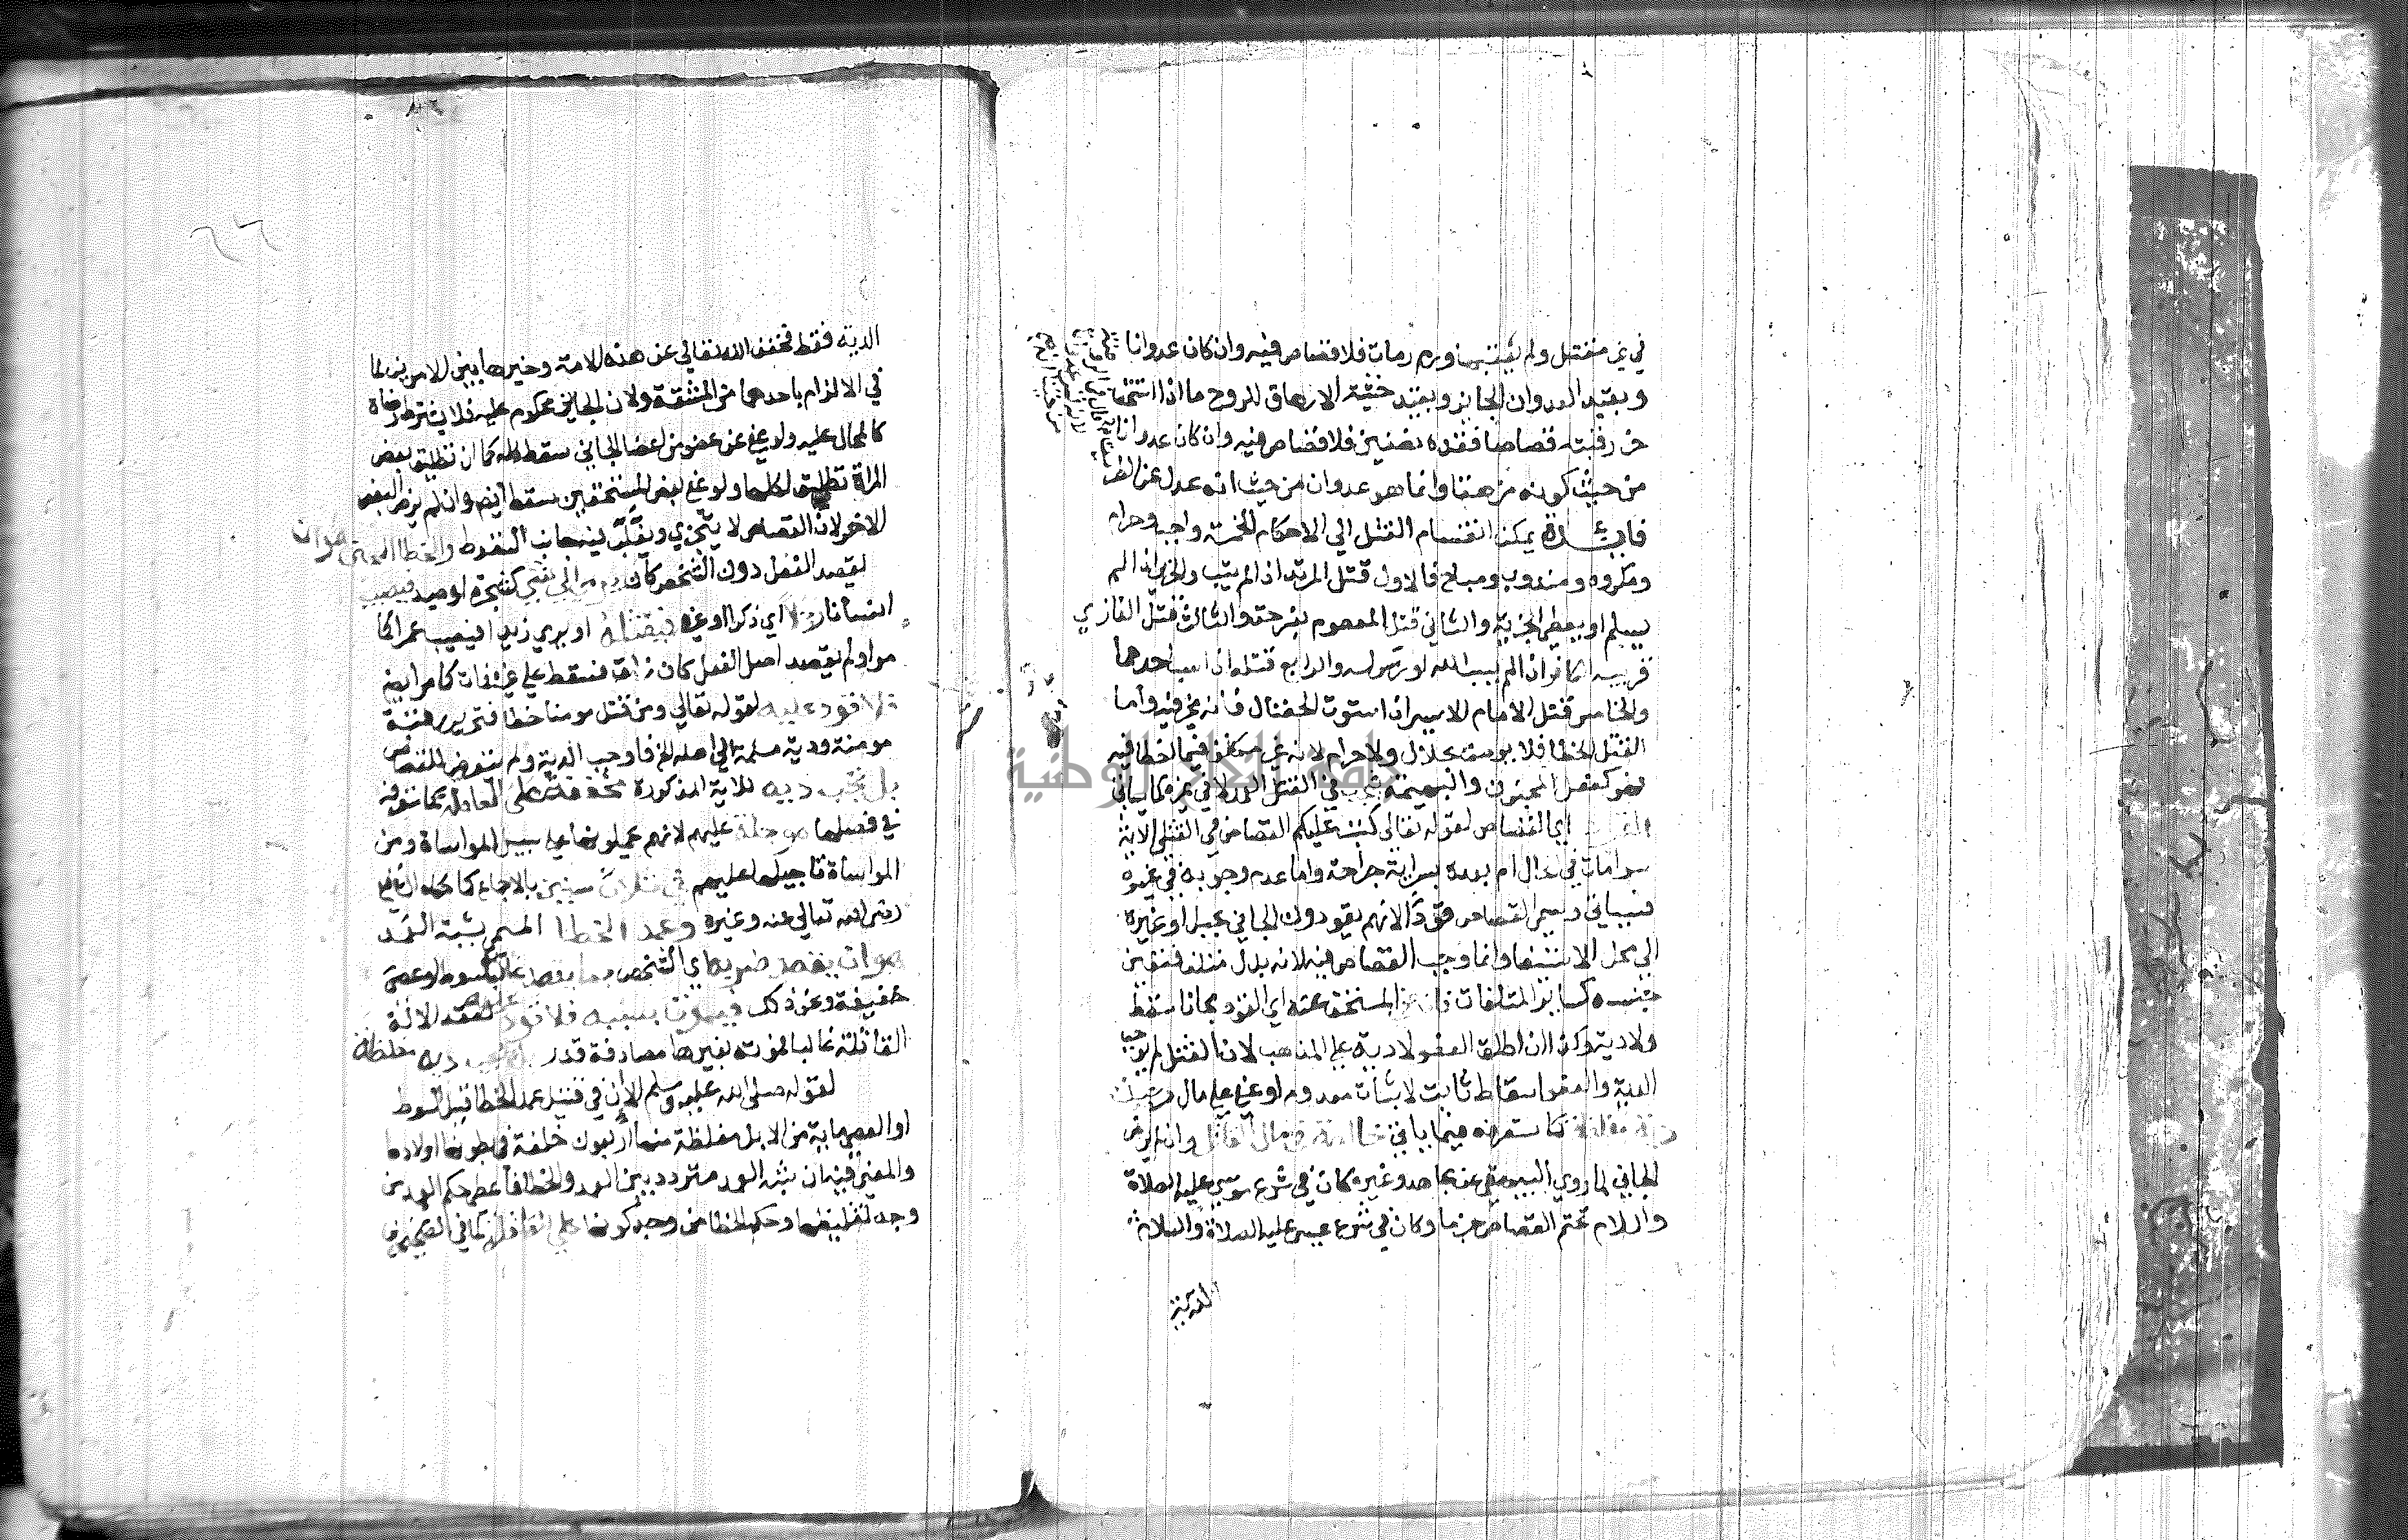 في غير مقتل ولم يعقبها ورم ومات فلا قصاص فيه وان كان عدوانا
وبقيد العدوان الجائز وبقيد حيثية الازهاق للروح ما اذا استحق
حز رقبته قصاصا فقده نصفين فلا قصاص فيه وان كان عدوانا
من حيث كونه مزهقا وانما هو عدوان من حيث انه عدل عن الطر
فايدة يمكن انقسام القتل الي الاحكام الخمسة واجب وحرام
ومكروه ومندوب ومباح فالاول قتل المرتد اذا لم يتب والحربي اذا لم
يسلم او يعطي الجزية والثاني قتل المعصوم بغير حق والثالث قتل الغازي
قريبه الكافر اذا لم يسب الله او رسوله والرابع قتله اذا سب احدهما
والخامس قتل الامام الاسير اذا استوت الخصال فانه مخير فيه واما
القتل الخطا فلا يوصف بحلال ولا حرام لانه غير مكلف فيما اخطا فيه
فهو كفعل المجنون والبهيمة فيجب في القتل العمد لا في غيره كما سياتي
القود اي القصاص لقوله تعالي كتب عليكم القصاص في القتلي الاية
سوا مات في الحال ام بعده بسراية جراحة واما عدم وجوبه في غيره
فسياتي وسمي القصاص قودا لانهم يقودون الجاني بحبل او غيره
الي محل الاستيفا وانما وجب القصاص فيه لانه بدل متلف فتعين
جنسه كساير المتلفات فان عفا المستحق عنه اي القود مجانا سقط
ولا دية وكذا ان اطلق العفو لا دية علي المذهب لان القتل لم يوجب
الدية والعفو اسقاط ثابت لا اثبات معدوم او عفي علي مال وجبت
دية مغلظة كما ستعرفه فيما ياتي حالة في مال القاتل وان لم يرض
الجاني لما روي البيهقي عن مجاهد وغيره كان في شرع موسي عليه الصلاة
والسلام تحتم القصاص جزما وكان في شرع عيسي عليه الصلاة والسلام
الدية
الدية فقط فخفف الله تعالي عن هذه الامة وخيرها بين الامرين لما
في الالزام باحدهما من المشقة ولان الجاني محكوم عليه فلا يشترط رضاه
كالمحال عليه ولو عفي عن عضو من اعضا الجاني سقط كله كما ان تطليق بعض
المراة تطليق لكلها ولو عفي بعض المستحقين سقط ايضا وان لم يرض البعض
الاخر لان القصاص لا يتجزي ويغلب فيه جانب السقوط والخطا المحض هو ان
لم يقصد الفعل دون الشخص كان يرمي الي شي كشجرة او صيد فيصيب
انسانا رجلا اي ذكرا او غيره فيقتله او يرمي زيدا فيصيب عمرا كما
مر او لم يقصد اصل الفعل كان زلق فسقط علي غيره فمات كما مر ايضا
فلا قود عليه لقوله تعالي ومن قتل مومنا خطا فتحرير رقبة
مومنة ودية مسلمة الي اهله الخ فاوجب الدية ولم يتعرض للقصاص
بل تجب دية للاية المذكورة مخففة علي العاقلة كما ستعرفه
في فصلها موجلة عليهم لانهم يحملونها علي سبيل المواساة ومن
المواساة تاجيلها عليهم في ثلاث سنين بالاجماع كما حكاه الشافعي
رضي الله تعالي عنه وغيره وعمد الخطا المسمي بشبه العمد
هو ان يقصد ضربه اي الشخص بما لا يقصد غالبا كسوط او عصي
خفيفة ونحو ذلك فيموت بسببه فلا قود عليه لفقد الالة
القاتلة غالبا فموته بغيرها مصادفة قدر بل تجب دية مغلظة
لقوله صلي الله عليه وسلم الا ان في قتيل عمد الخطا قتيل السوط
او العصي ماية من الابل مغلظة منها اربعون خلفة في بطونها اولادها
والمعني فيه ان شبه العمد متردد بين العمد والخطا فاعطي حكم العمد من
وجه تغليظها وحكم الخطا من وجه كونها علي العاقلة كما في الصحيحين